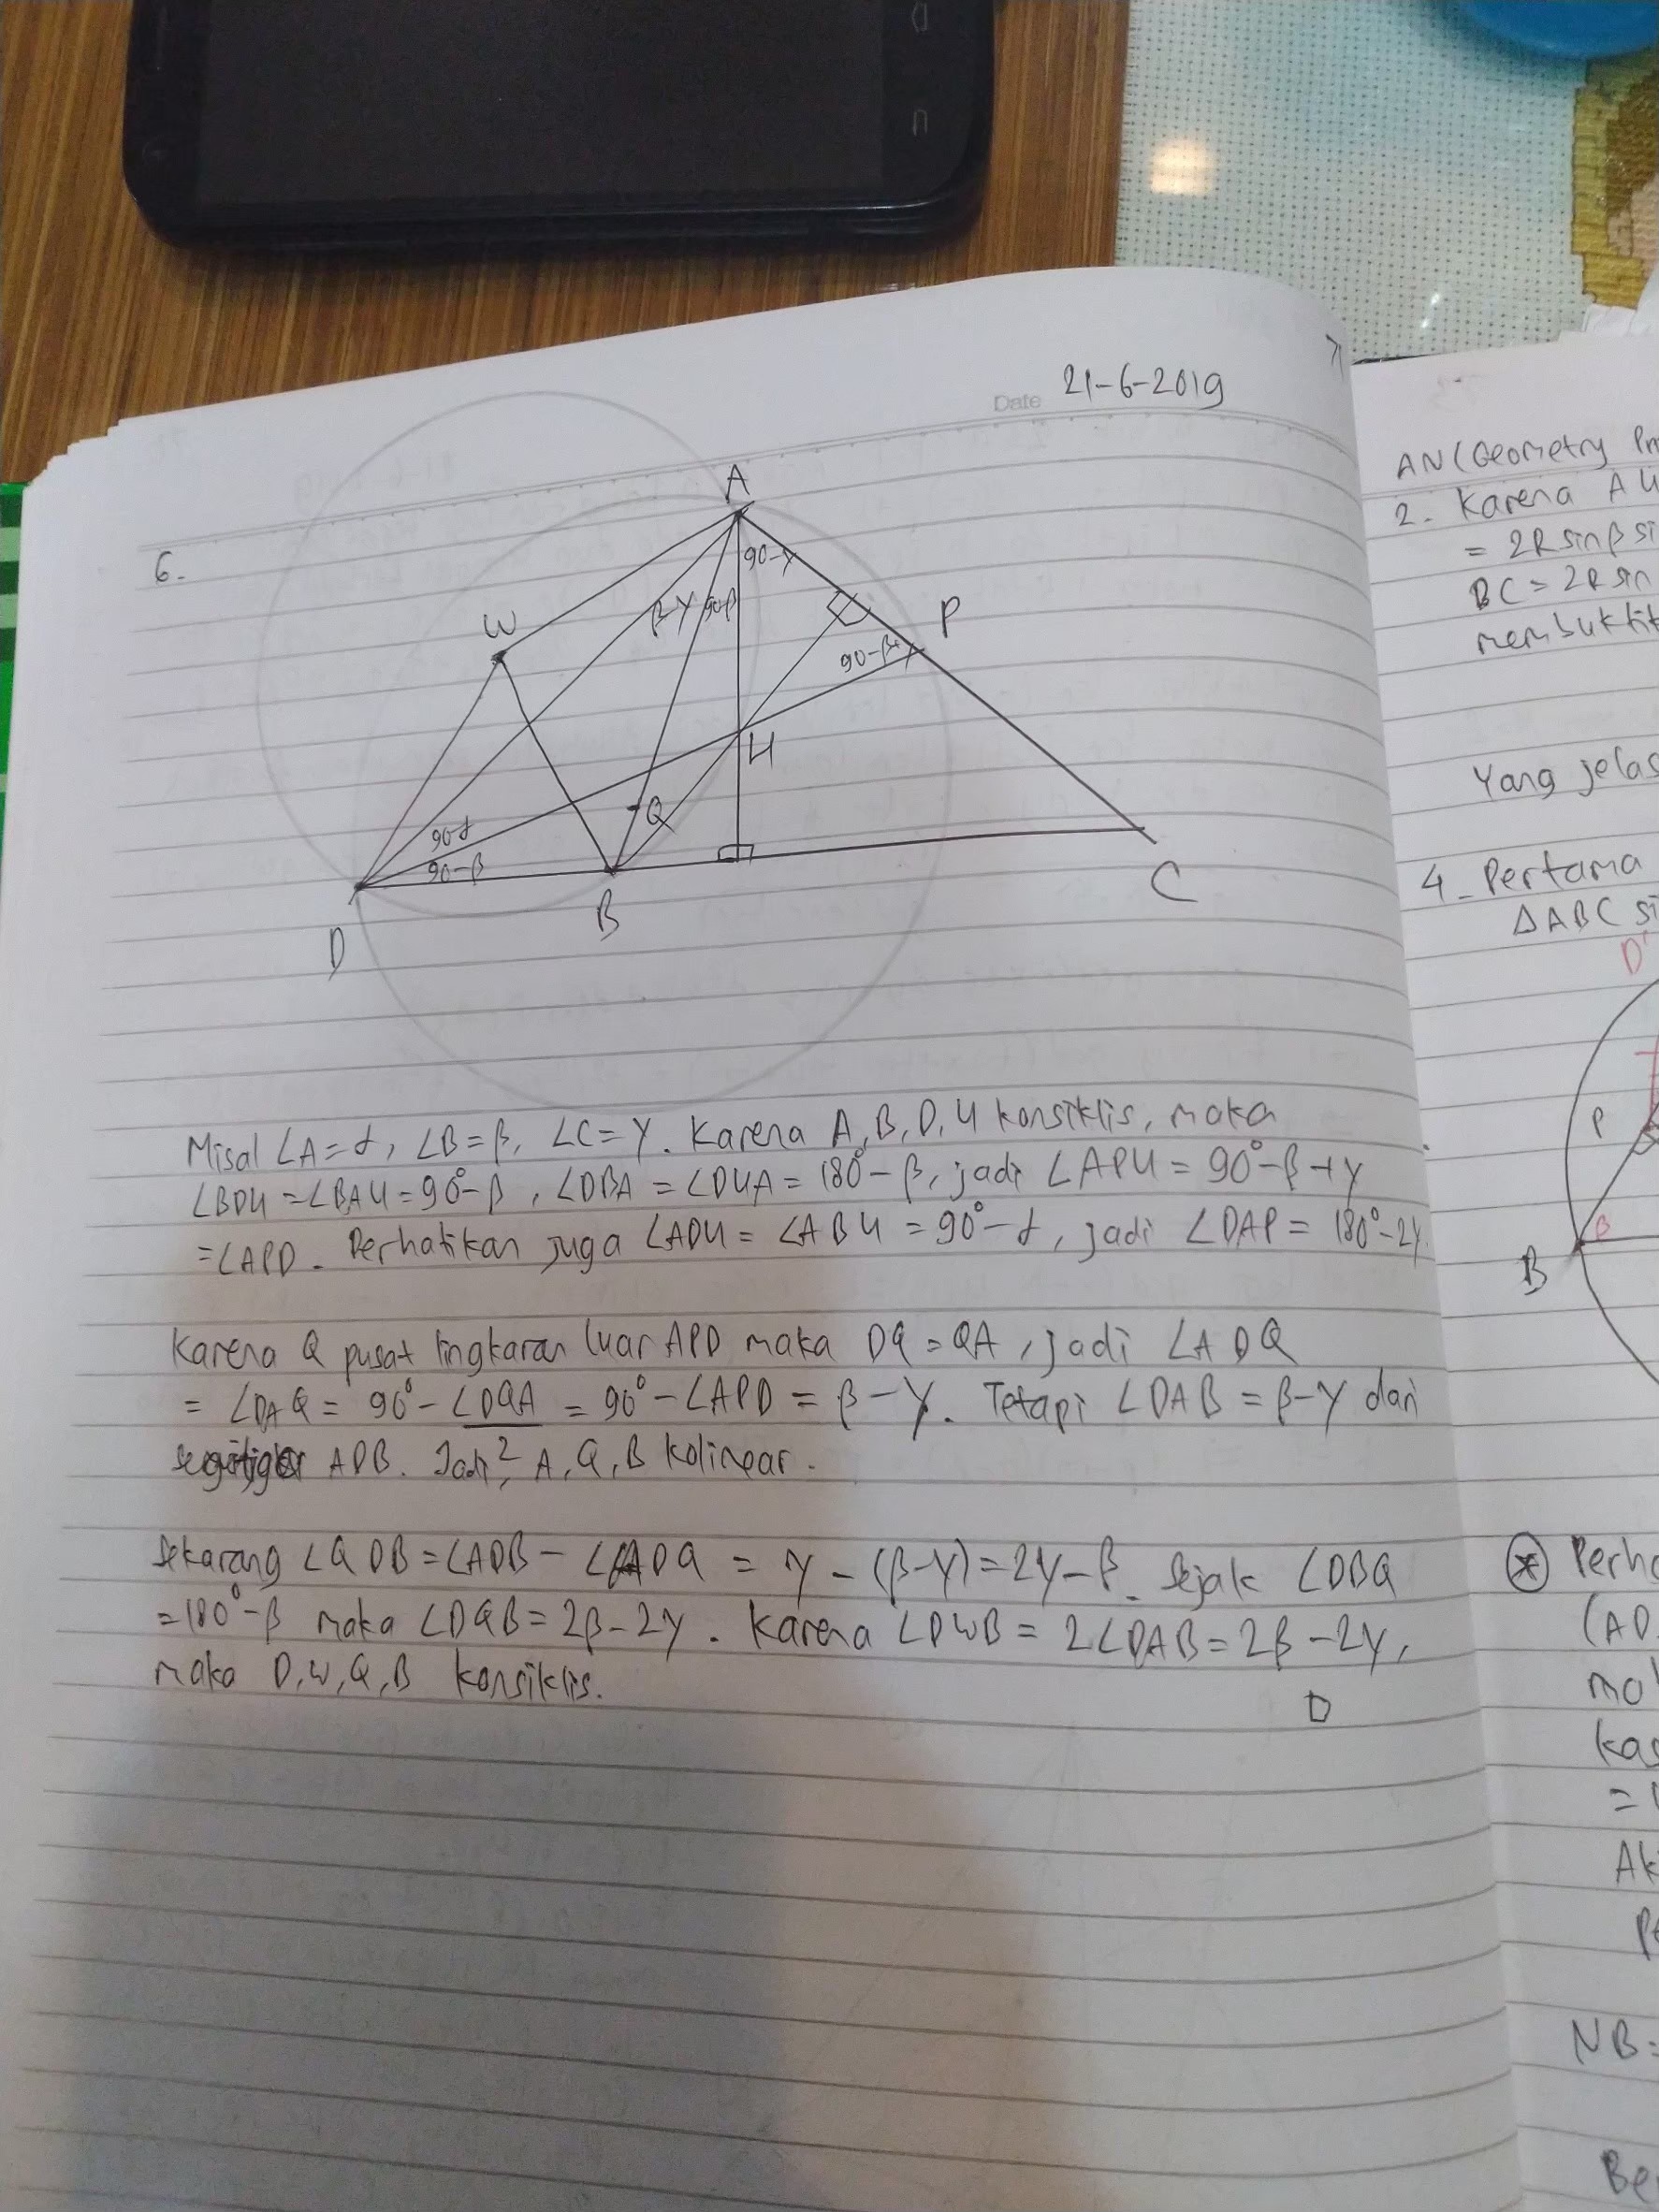 Date 21-6-2019
6.
A
90-γ
β-γ
90-β
W
P
90-β+γ
H
Q
90-α
90-β
D
B
C
Misal ∠A=α, ∠B=β, ∠C=γ. Karena A,B,D,H konsiklis, maka
∠BDH=∠BAH=90°-β, ∠DBA=∠DHA=180°-β, jadi ∠APH=90°-β+γ
=∠APD. Perhatikan juga ∠ADH=∠ABH=90°-α, jadi ∠DAP=180°-2γ.
Karena Q pusat lingkaran luar APD maka DQ=QA, jadi ∠ADQ
=∠DAQ=90°-∠DQA/2=90°-∠APD=β-γ. Tetapi ∠DAB=β-γ dari
segitiga ADB. Jadi, A,Q,B kolinear.
Sekarang ∠QDB=∠ADB-∠ADQ=γ-(β-γ)=2γ-β. Sejak ∠DBQ
=180°-β maka ∠DQB=2β-2γ. Karena ∠DWB=2∠DAB=2β-2γ,
maka D,W,Q,B konsiklis.
□
AN (Geometry
2. Karena A
= 2R sin β
BC = 2R sin
Yang jelas
4. Pertama
△ABC
D'
P
B
β
(AD
=
NB=